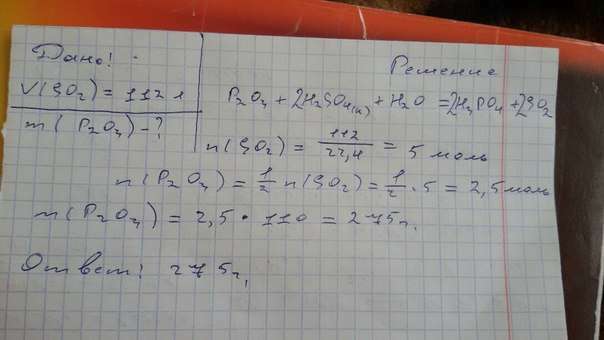 Дано:
V(SO₂) = 112 л
m(P₂O₃) - ?
Решение
P₂O₃ + 2H₂SO₄(к) + H₂O = 2H₃PO₄ + 2SO₂
n(SO₂) = 112/22,4 = 5 моль
n(P₂O₃) = 1/2 n(SO₂) = 1/2 · 5 = 2,5 моль
m(P₂O₃) = 2,5 · 110 = 275г.
Ответ: 275г.